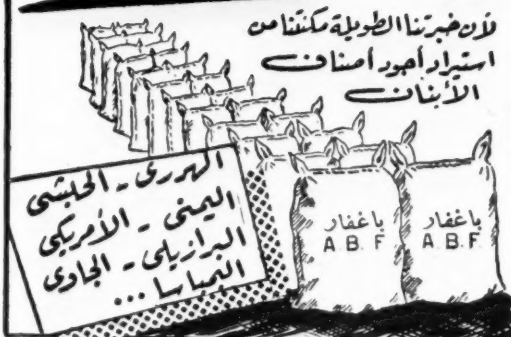 لأن خبرتنا الطويلة مكنتنا من
استيراد أجود أصناف
الأبنان
الهررى - الحبشى
اليمنى - الأمريكى
البرازيلى - الجاوى
الممباسا ...
باغفار
A.B.F
باغفار
A.B.F.